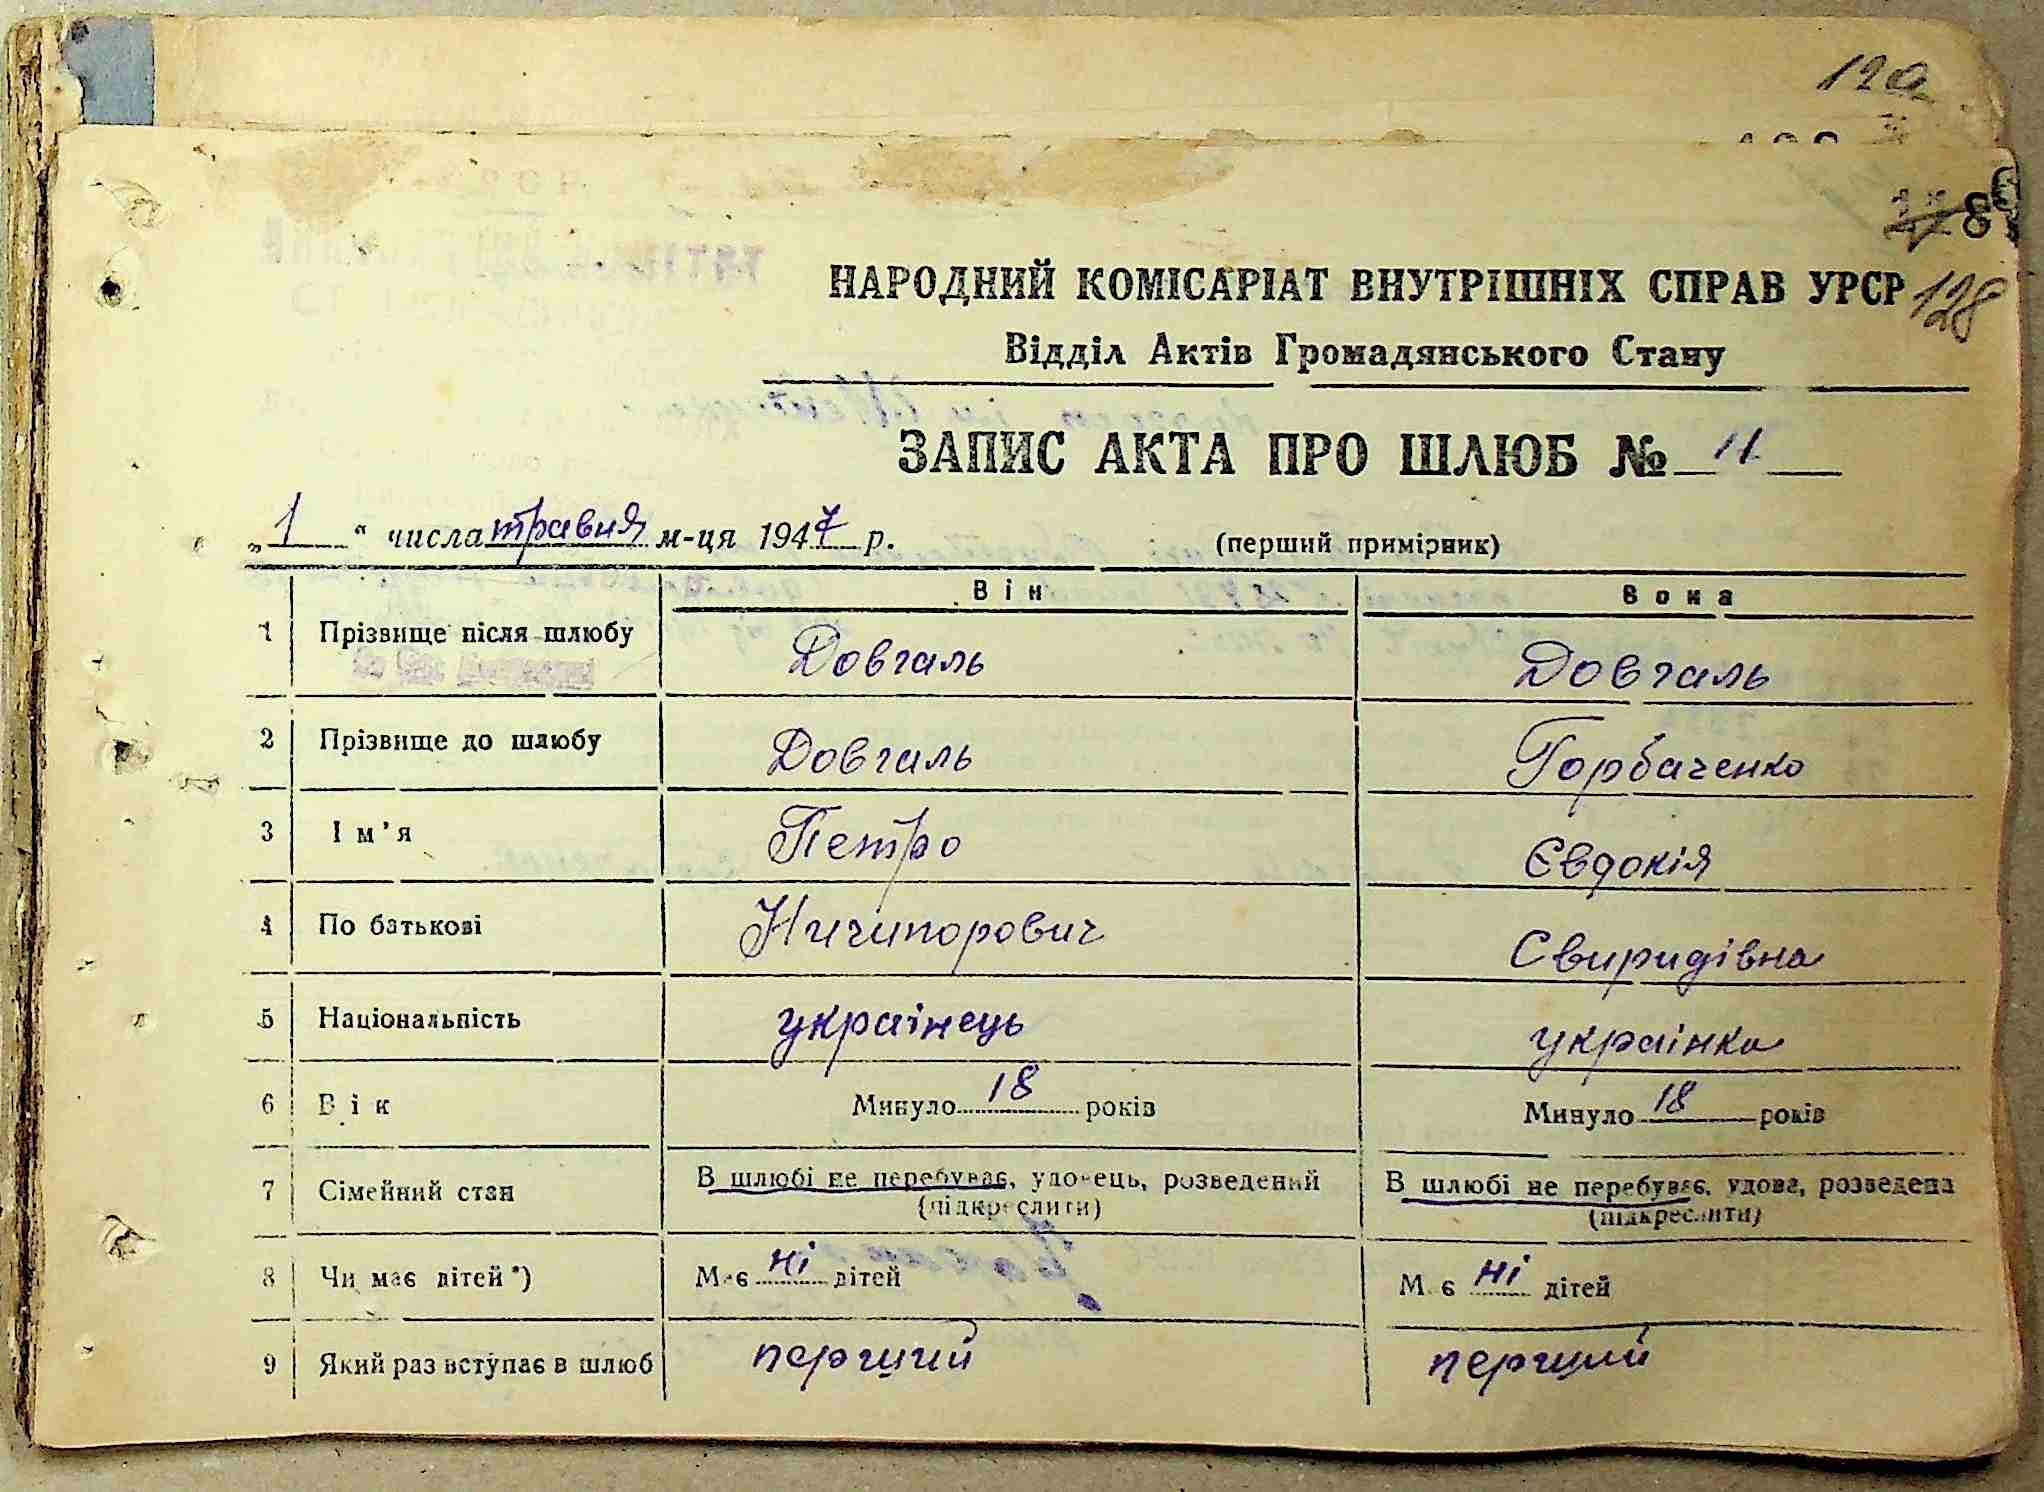 129
128
НАРОДНИЙ КОМІСАРІАТ ВНУТРІШНІХ СПРАВ УРСР
Відділ Актів Громадянського Стану
ЗАПИС АКТА ПРО ШЛЮБ № 11
„1“ числа травня м-ця 1947 р. (перший примірник)
Він Вона
1 Прізвище після шлюбу Довгаль Довгаль
2 Прізвище до шлюбу Довгаль Горбаченко
3 Ім’я Петро Євдокія
4 По батькові Ничипорович Свиридівна
5 Національність українець українка
6 Вік Минуло 18 років Минуло 18 років
7 Сімейний стан В шлюбі не перебуває, удовець, розведений В шлюбі не перебуває, удова, розведена
(підкреслити) (підкреслити)
8 Чи має дітей*) Має ні дітей Має ні дітей
9 Який раз вступає в шлюб перший перший